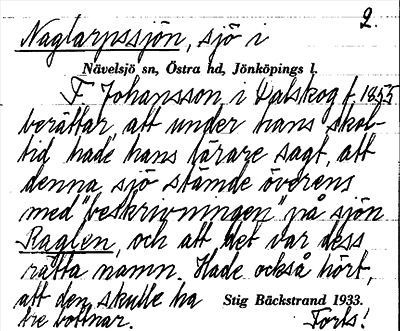 2.
Naglarpssjön, sjö i
Nävelsjö sn, Östra hd, Jönköpings l.
F. Johansson i Dalskog f. 1855
berättar, att under hans skol-
tid hade hans lärare sagt, att
denna sjö stämde överens
med "beskrivningen" på sjön
Raglen, och att det var dess
rätta namn. Hade också hört,
att den skulle ha Stig Bäckstrand 1933.
tre bottnar. Forts!